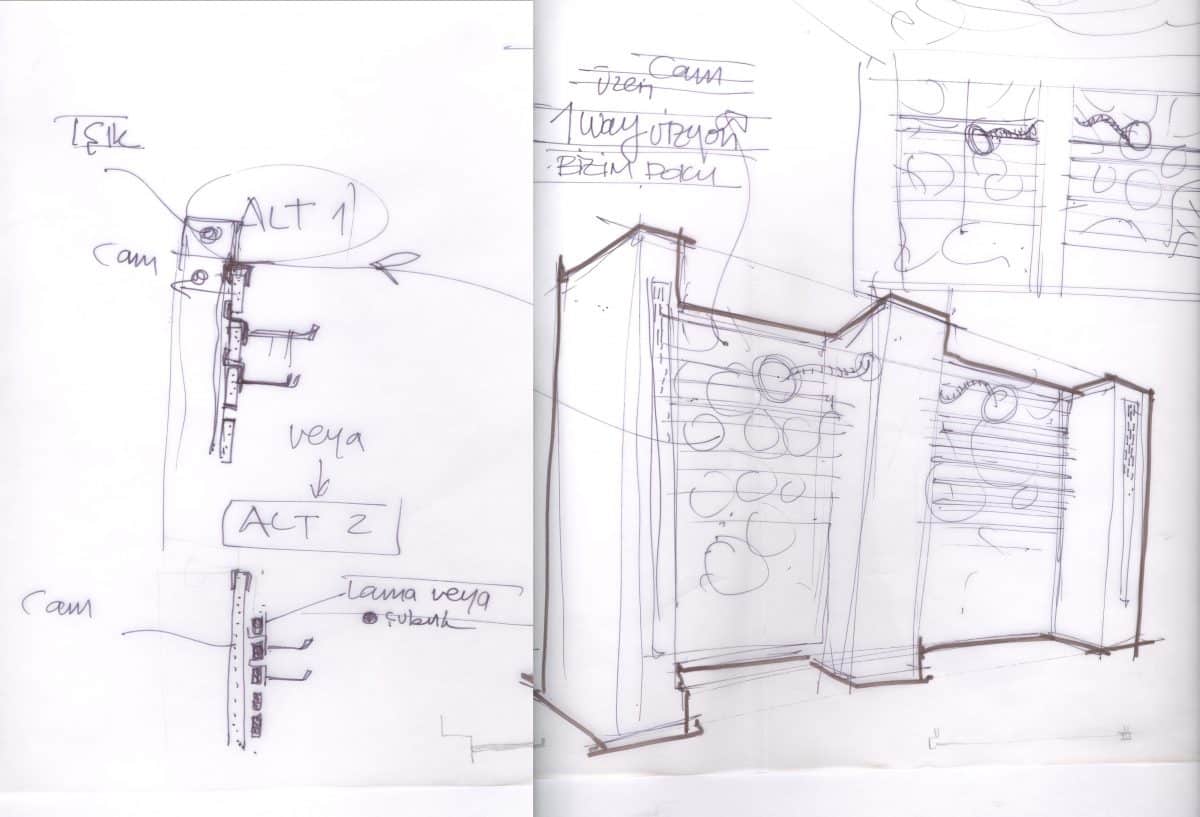 IŞIK
ALT 1
Cam
veya
ALT 2
Cam
Lama veya
çubuk
Cam
üzeri
1 way vizyon
BİZİM DOKU